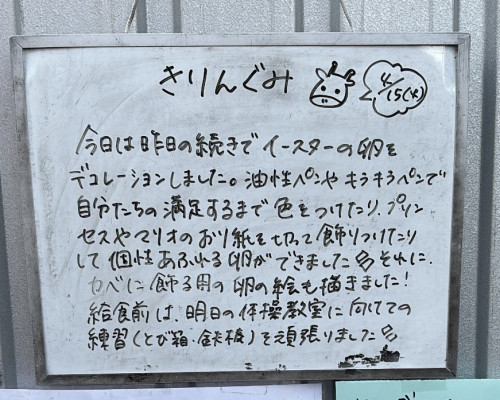 きりんぐみ
4/15(火)
今日は昨日の続きでイースターの卵を
デコレーションしました。油性ペンやキラキラペンで
自分たちの満足するまで色をつけたり、プリン
セスやマリオのおり紙を切って飾りつけたり
して個性あふれる卵ができました それに、
カベに飾る用の卵の絵も描きました!
給食前は、明日の体操教室に向けての
練習(とび箱・鉄棒)を頑張りました